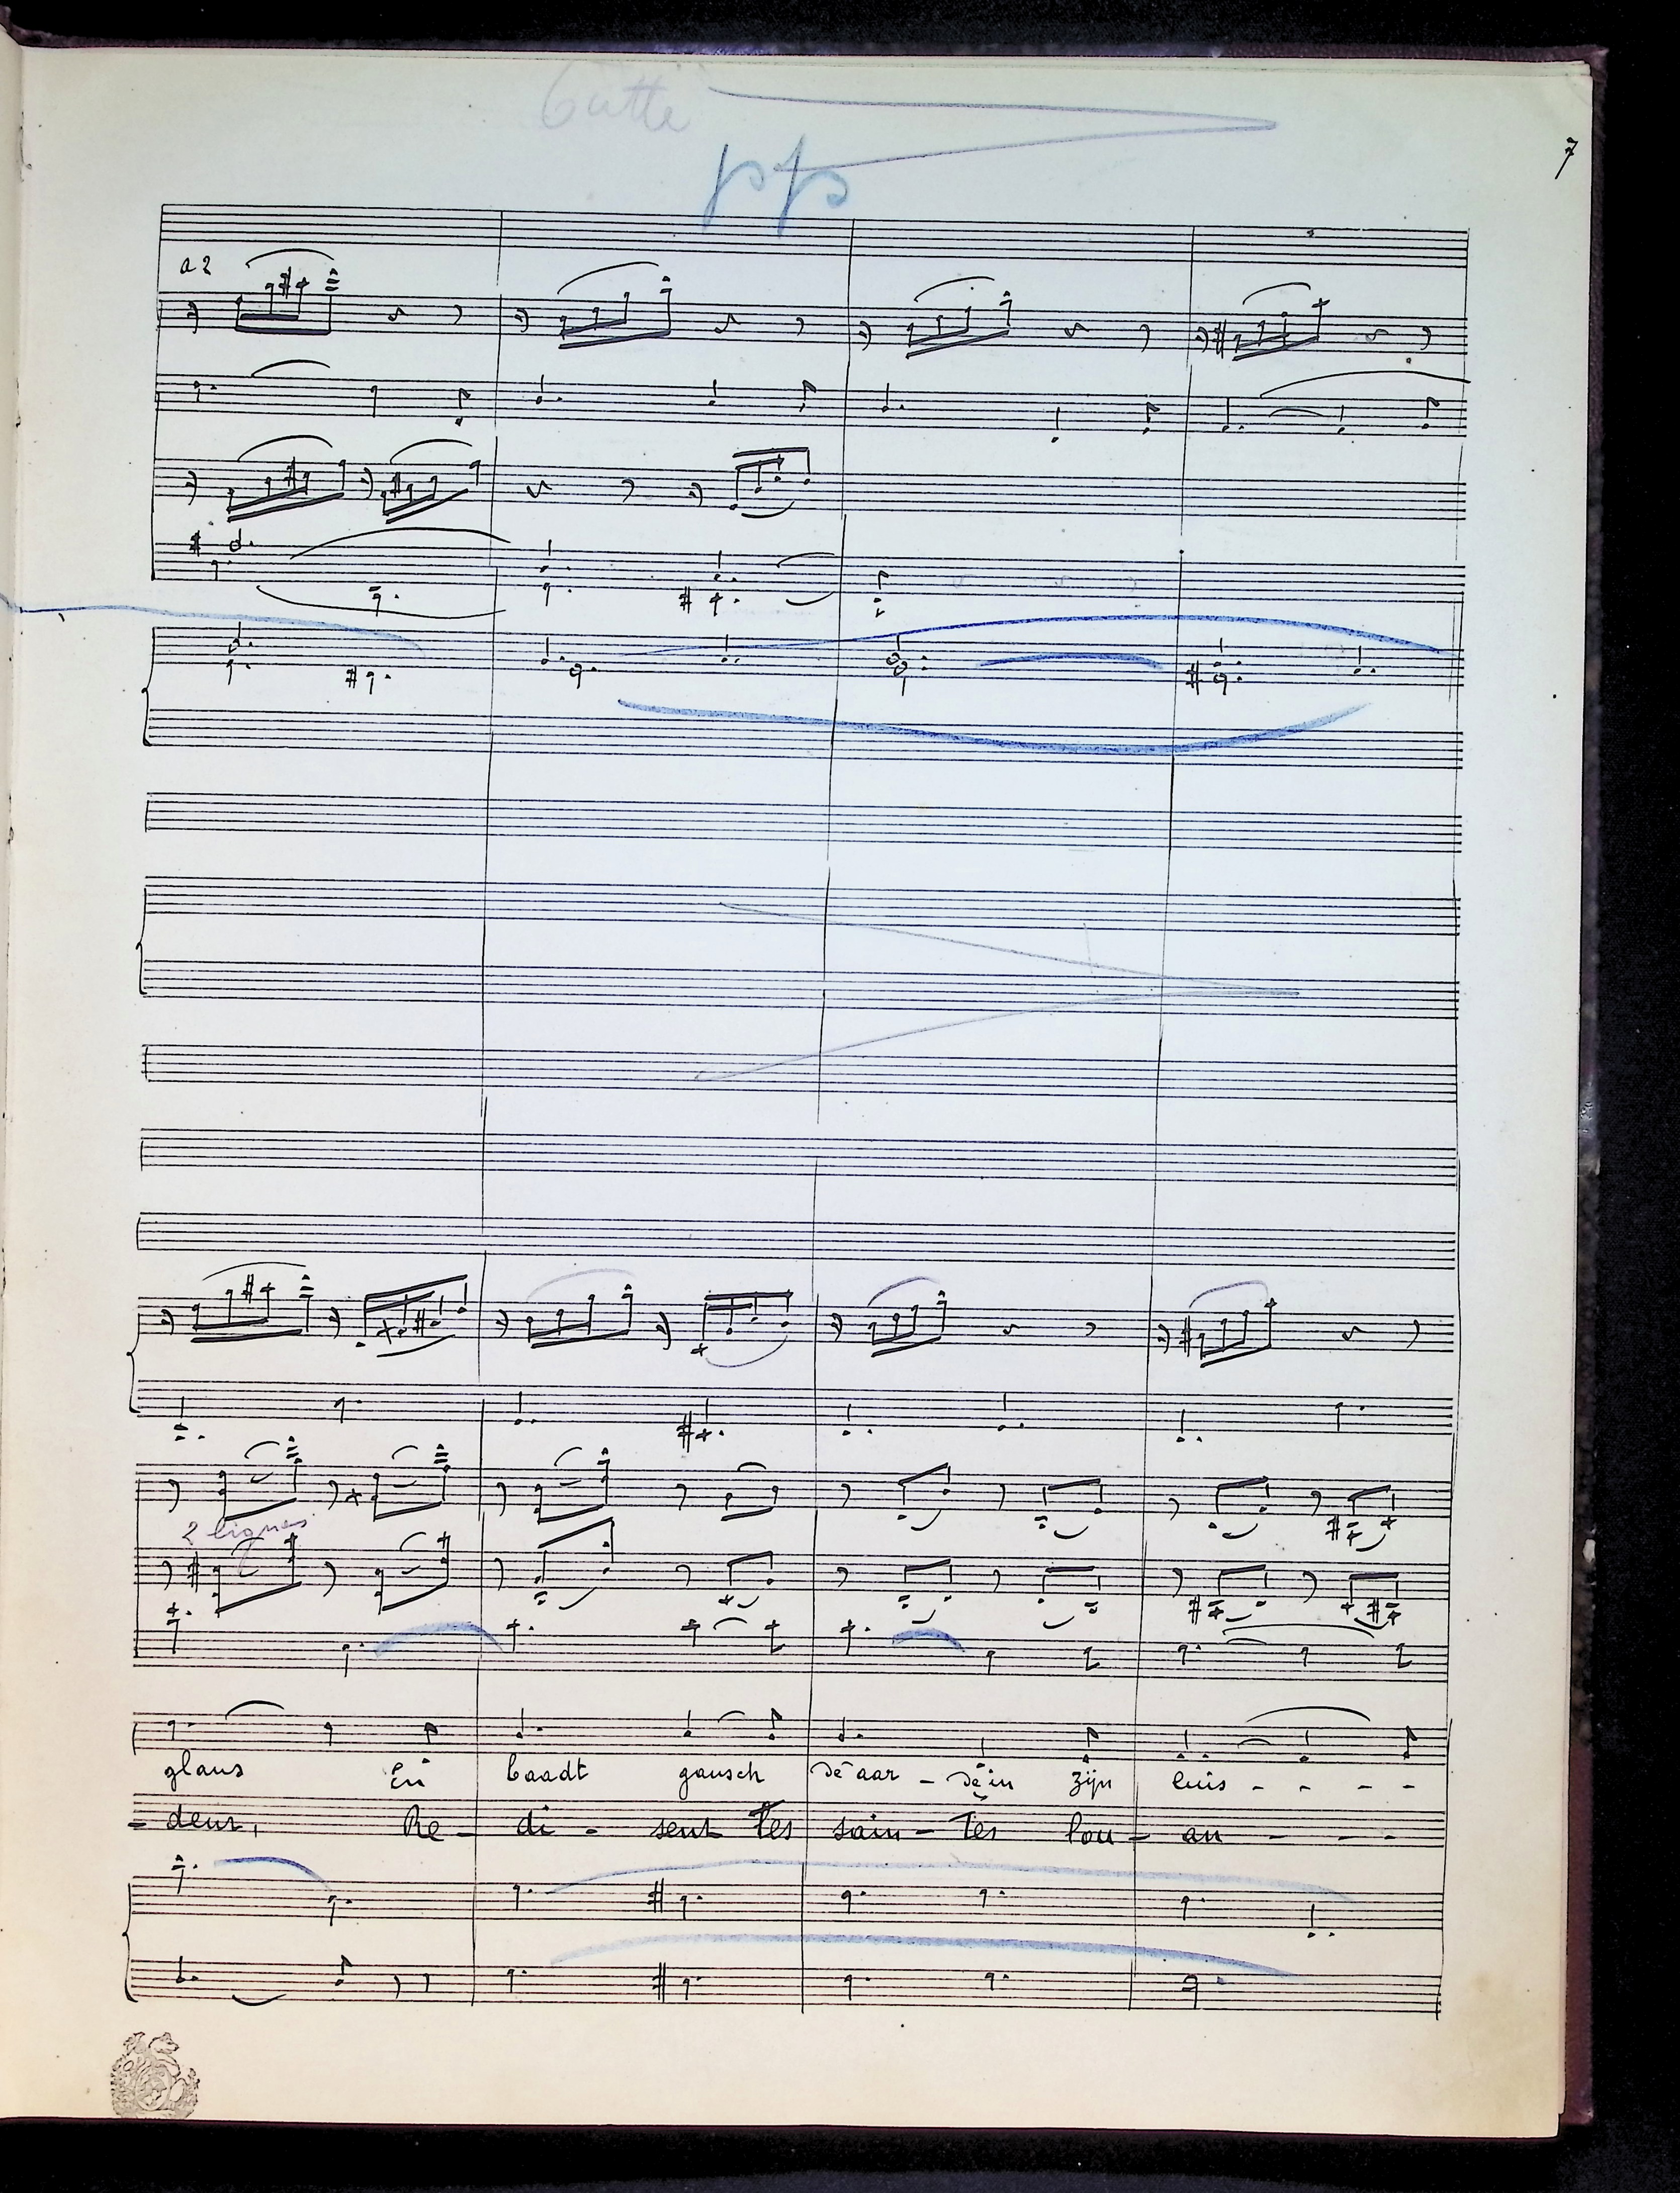 7
pp
a 2
2 lignes
glans En baadt gansch de aar - de in zijn luis - - - -
- deur, Re - di - sent tes sain - tes lou - an - - -